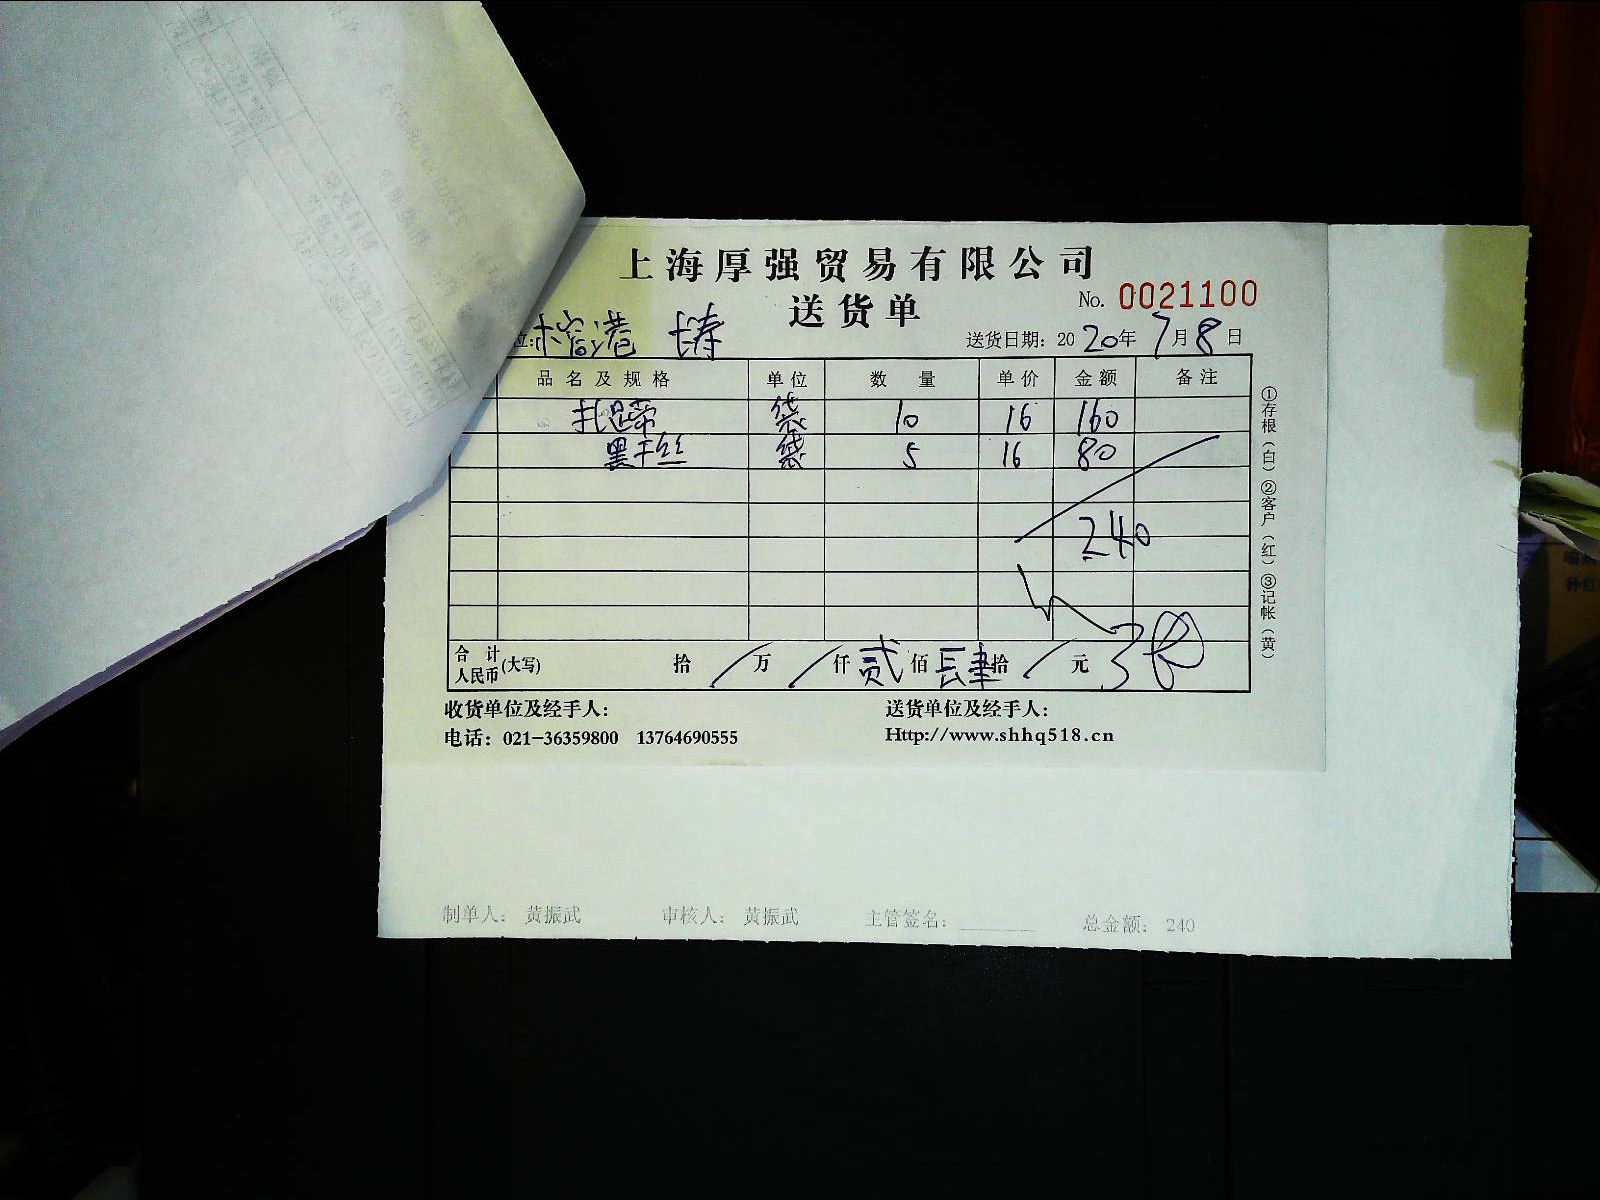 上海厚强贸易有限公司
送货单 No. 0021100
位: 港 长寿 送货日期: 2020年7月8日
品名及规格 单位 数量 单价 金额 备注
扎蹄 袋 10 16 160
黑千丝 袋 5 16 80
240
合计人民币(大写) 拾 / 万 / 仟 贰 佰 肆 拾 / 元
①存根(白)②客户(红)③记帐(黄)
收货单位及经手人: 送货单位及经手人:
电话: 021-36359800 13764690555 Http://www.shhq518.cn
制单人: 黄振武 审核人: 黄振武 主管签名: 总金额: 240